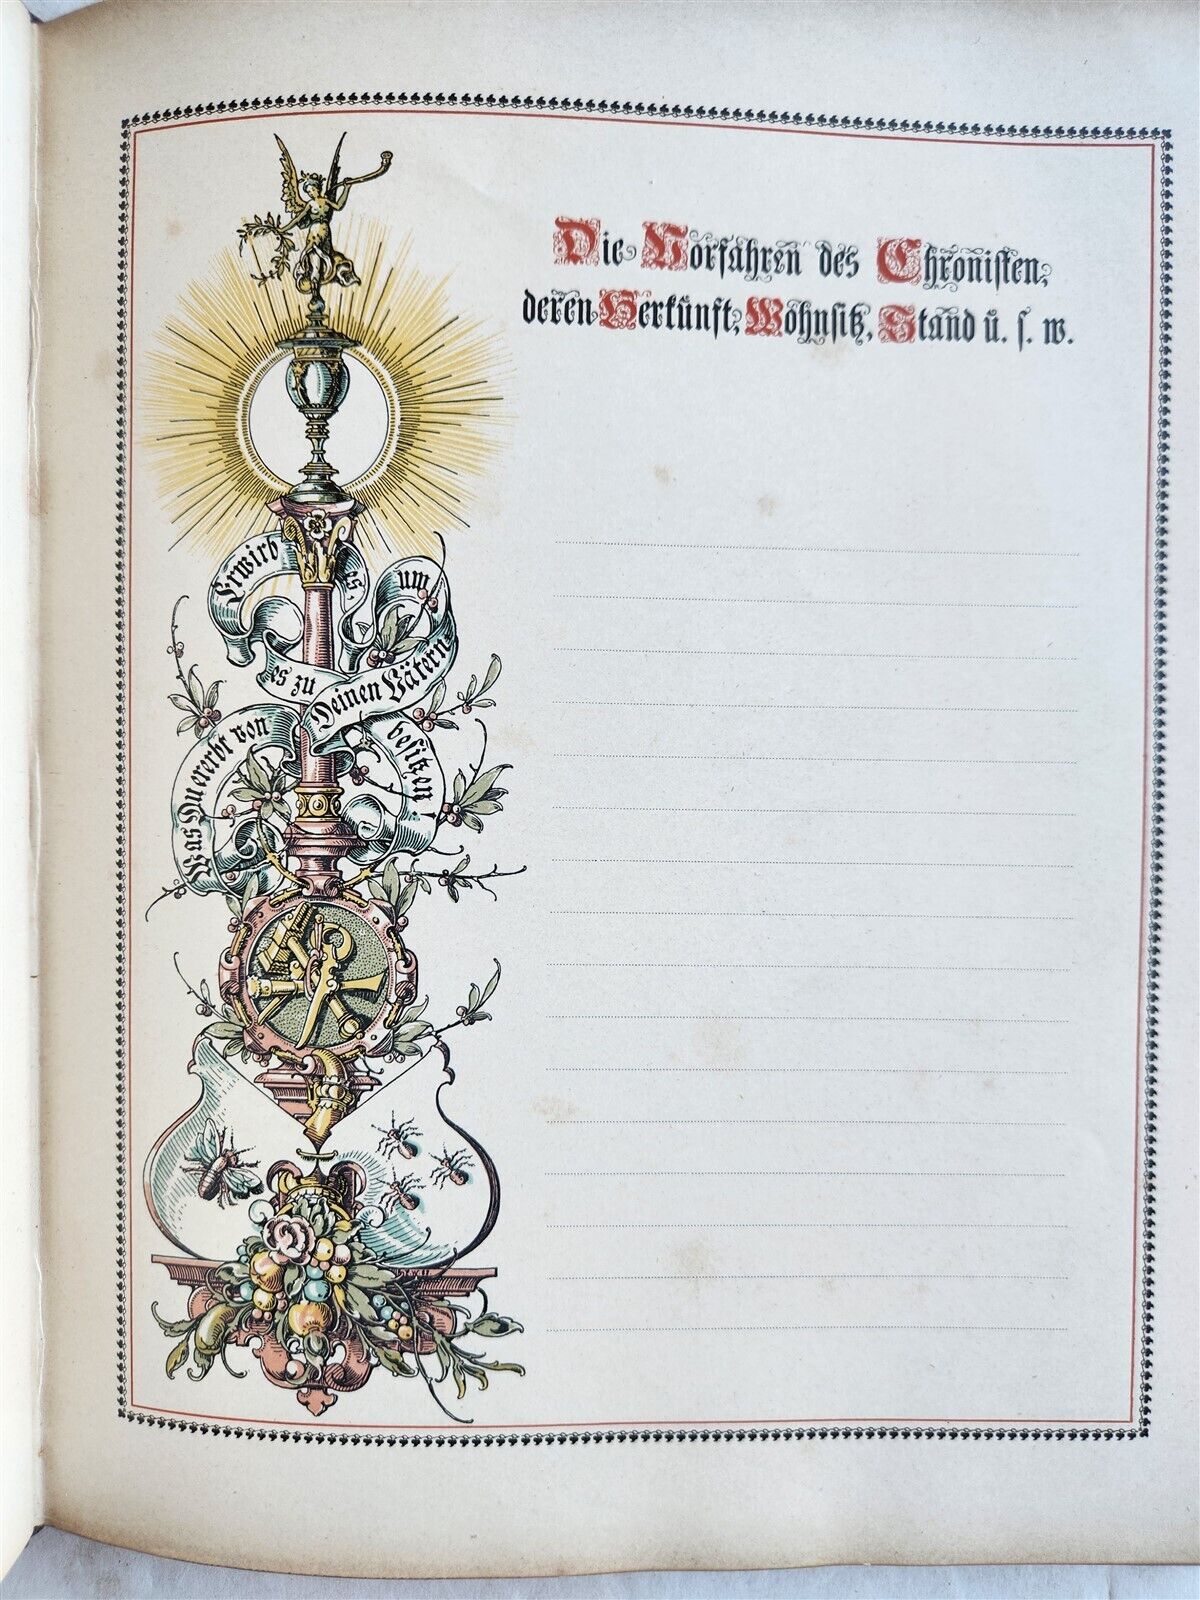 Die Vorfahren des Chronisten,
deren Herkunft, Wohnsitz, Stand u. s. w.
Was Du ererbt von
Deinen Vätern
Erwirb es, um
es zu
besitzen!